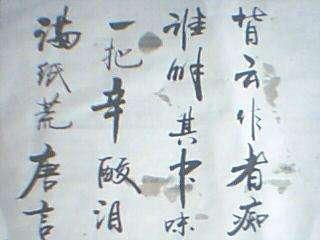 皆云作者痴
谁解其中味
一把辛酸泪
满纸荒唐言